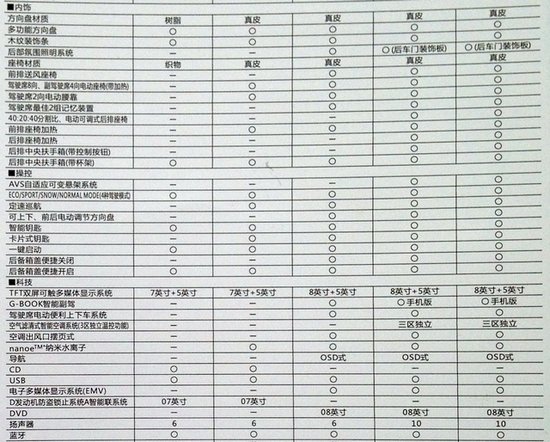 ■内饰
方向盘材质 树脂 真皮 真皮 真皮 真皮
多功能方向盘
木纹装饰条
后部氛围照明系统 (后车门装饰板) (后车门装饰板)
座椅材质 织物 真皮 真皮 真皮 真皮
前排送风座椅
驾驶席8向、副驾驶席4向电动座椅(带加热)
驾驶席2向电动腰靠
驾驶席最佳2组记忆装置
40:20:40分割比、电动可调式后排座椅
前排座椅加热
后排座椅加热
后排中央扶手箱(带控制按钮)
后排中央扶手箱(带杯架)
■操控
AVS自适应可变悬架系统
ECO/SPORT/SNOW/NORMAL MODE(4种驾驶模式)
定速巡航
可上下、前后电动调节方向盘
智能钥匙
卡片式钥匙
一键启动
后备箱盖便捷关闭
后备箱盖便捷开启
■科技
TFT双屏可触多媒体显示系统 7英寸+5英寸 7英寸+5英寸 8英寸+5英寸 8英寸+5英寸 8英寸+5英寸
G-BOOK智能副驾 手机版 手机版
驾驶席电动便利上下车系统
空气滤清式智能空调系统(3区独立温控功能) 三区独立 三区独立
空调出风口摆页式
nanoe™纳米水离子
导航 OSD式 OSD式 OSD式
CD
USB
电子多媒体显示系统(EMV)
D发动机防盗锁止系统A智能联系统 07英寸 07英寸
DVD 08英寸 08英寸 08英寸
扬声器 6 6 6 10 10
蓝牙